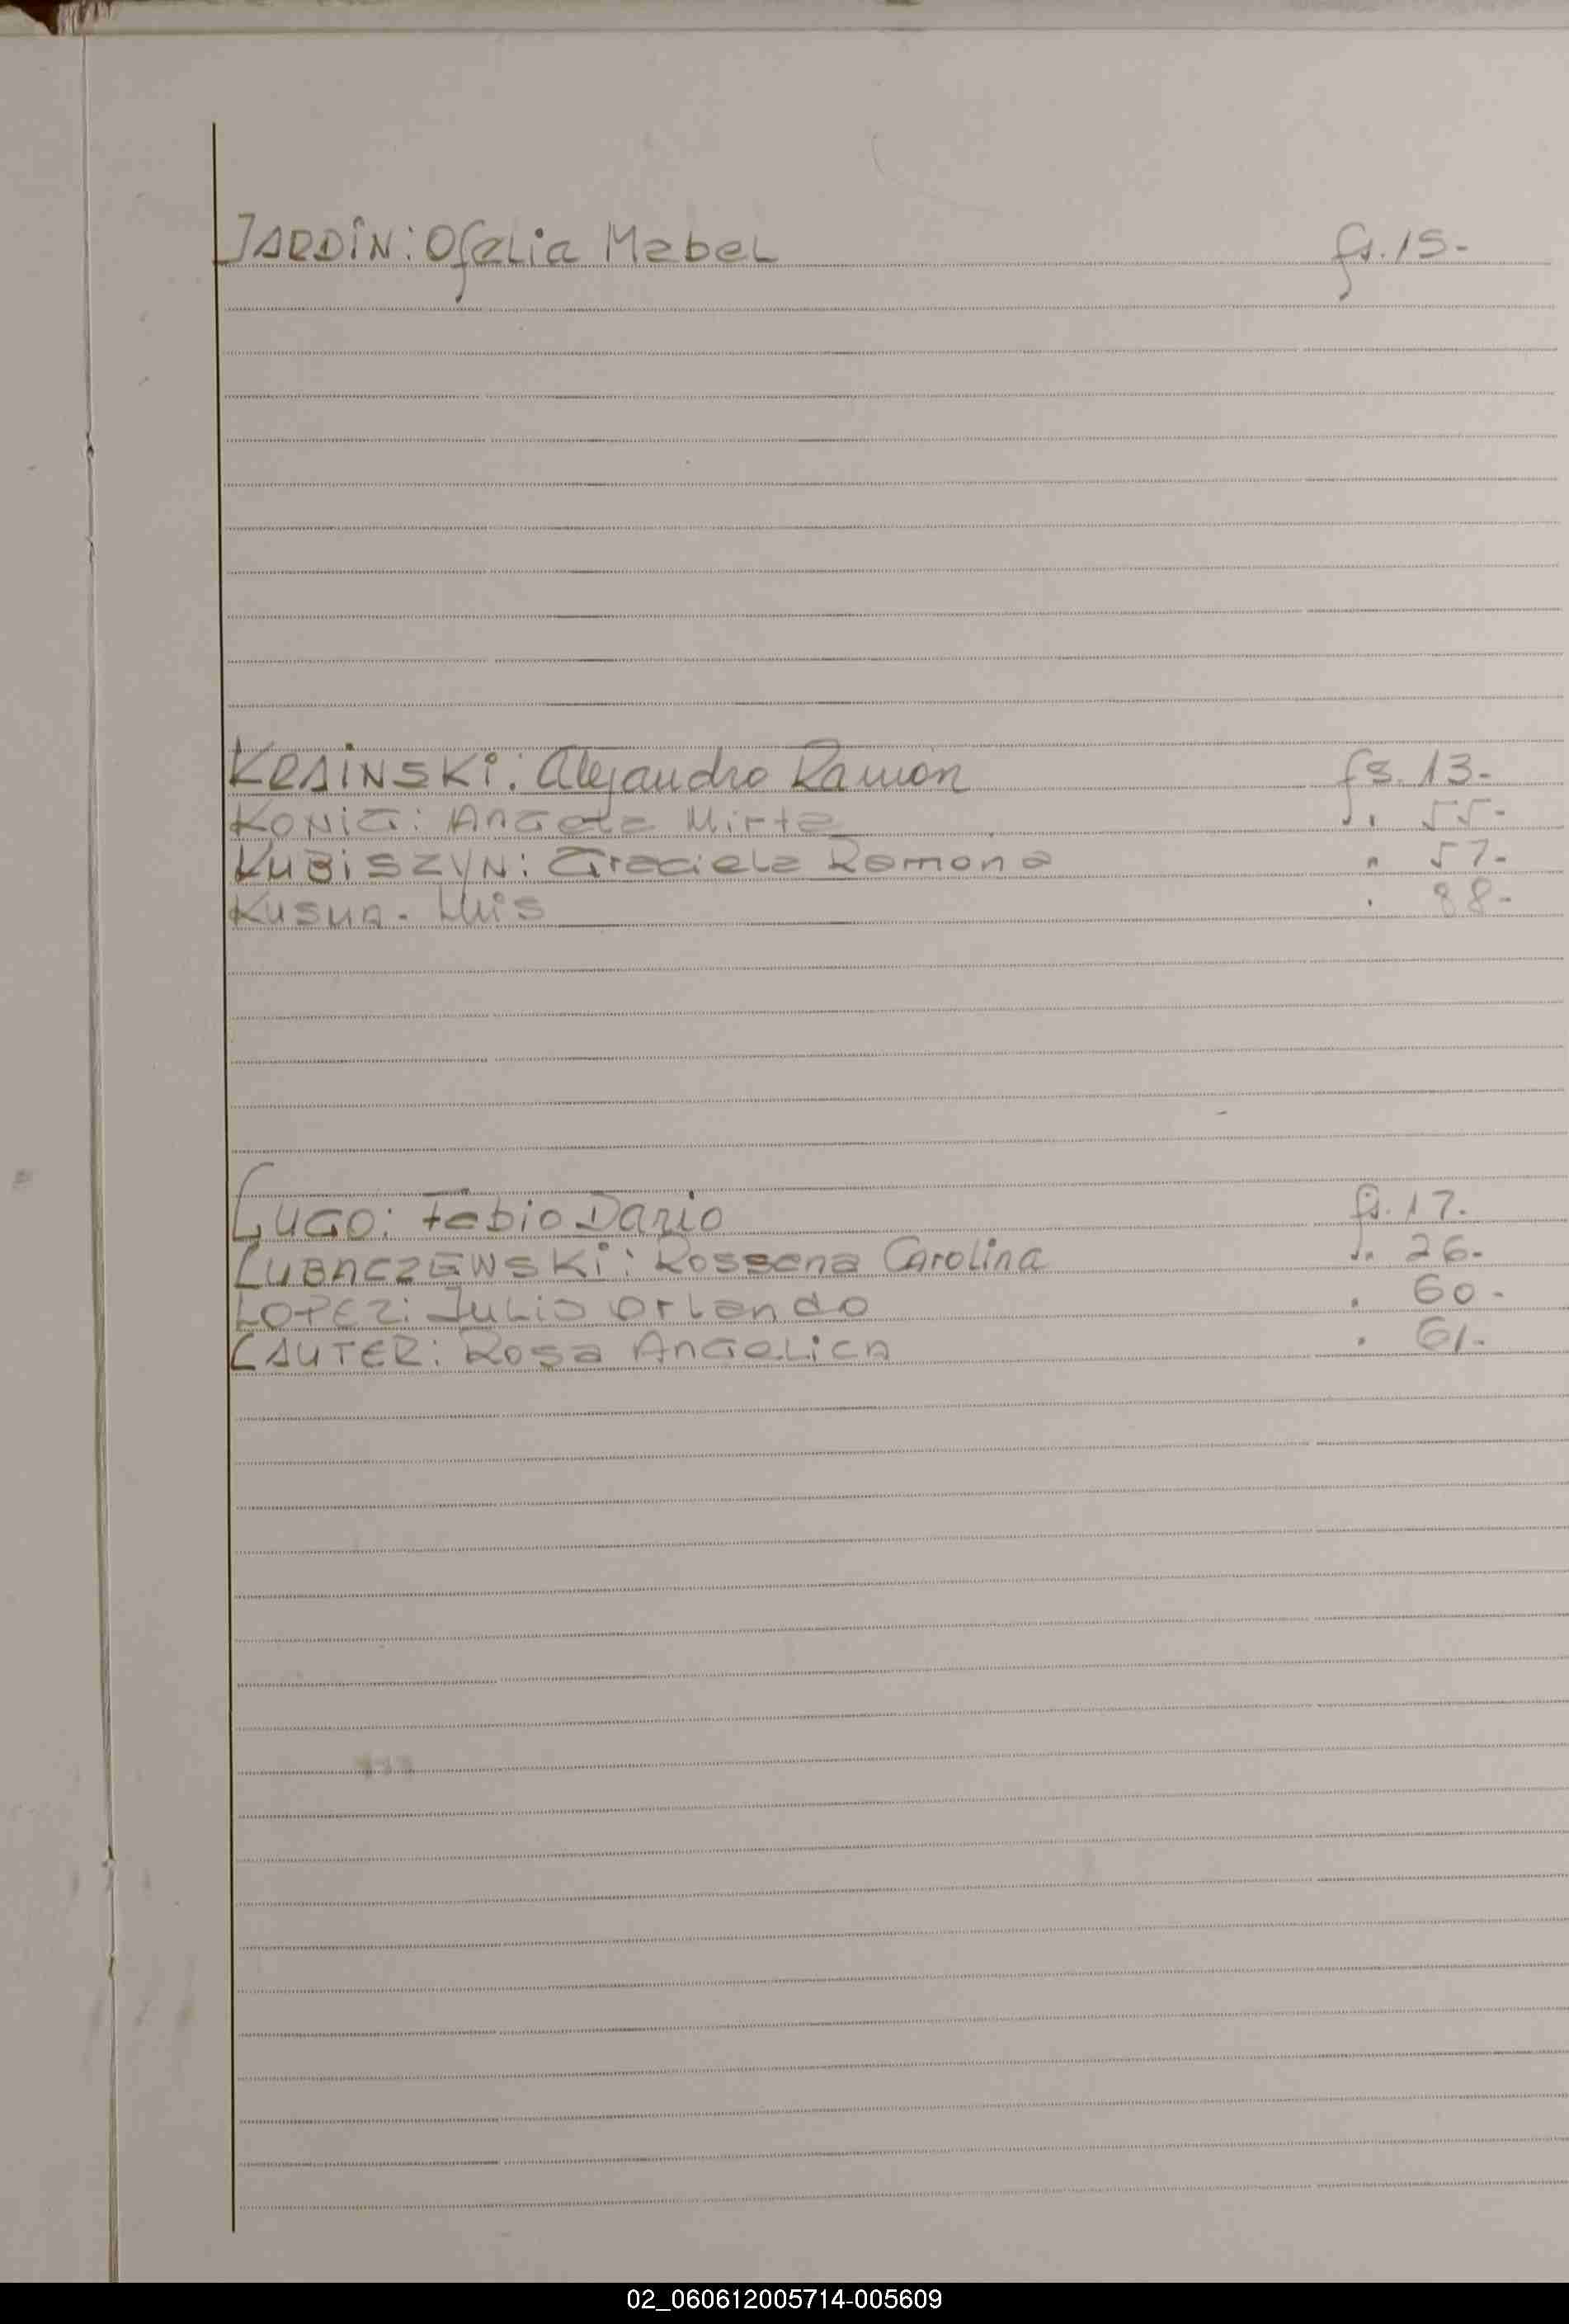 JARDÍN: Ofelia Mabel fs. 15-
KRAINSKI: Alejandro Ramón fs. 13-
KONIG: Angela Mirta " 55-
KUBISZYN: Graciela Ramona " 57-
Luis " 88-
LUGO: Fabio Dario fs. 17-
LUBACZEWSKI: Rossana Carolina " 26-
LOPEZ: Julio Orlando " 60-
LAUTER: Rosa Angelica " 61-
02_060612005714-005609